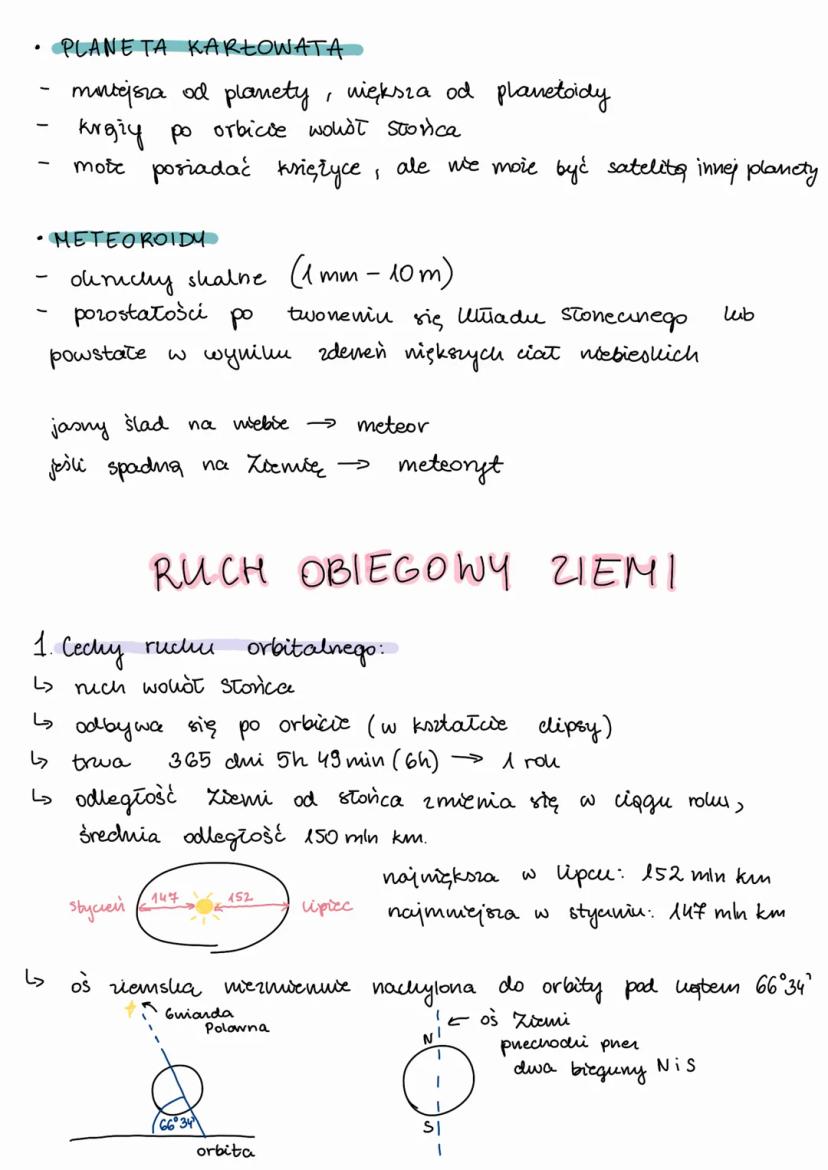 • PLANETA KARŁOWATA
- mniejsza od planety, większa od planetoidy
- krąży po orbicie wokół Słońca
- może posiadać księżyce, ale nie może być satelitą innej planety
• METEOROIDY
- okruchy skalne (1 mm - 10 m)
- pozostałości po tworzeniu się Układu Słonecznego lub
powstałe w wyniku zderzeń większych ciał niebieskich
jasny ślad na niebie → meteor
jeśli spadną na Ziemię → meteoryt
RUCH OBIEGOWY ZIEMI
1. Cechy ruchu orbitalnego:
↳ ruch wokół Słońca
↳ odbywa się po orbicie (w kształcie elipsy)
↳ trwa 365 dni 5h 49 min (6h) → 1 rok
↳ odległość Ziemi od Słońca zmienia się w ciągu roku,
średnia odległość 150 mln km.
największa w lipcu: 152 mln km
styczeń 147 152 lipiec
najmniejsza w styczniu: 147 mln km
↳ oś ziemska niezmiennie nachylona do orbity pod kątem 66°34'
Gwiazda
Polarna
66°34'
orbita
N
S
← oś Ziemi
przechodzi przez
dwa bieguny N i S